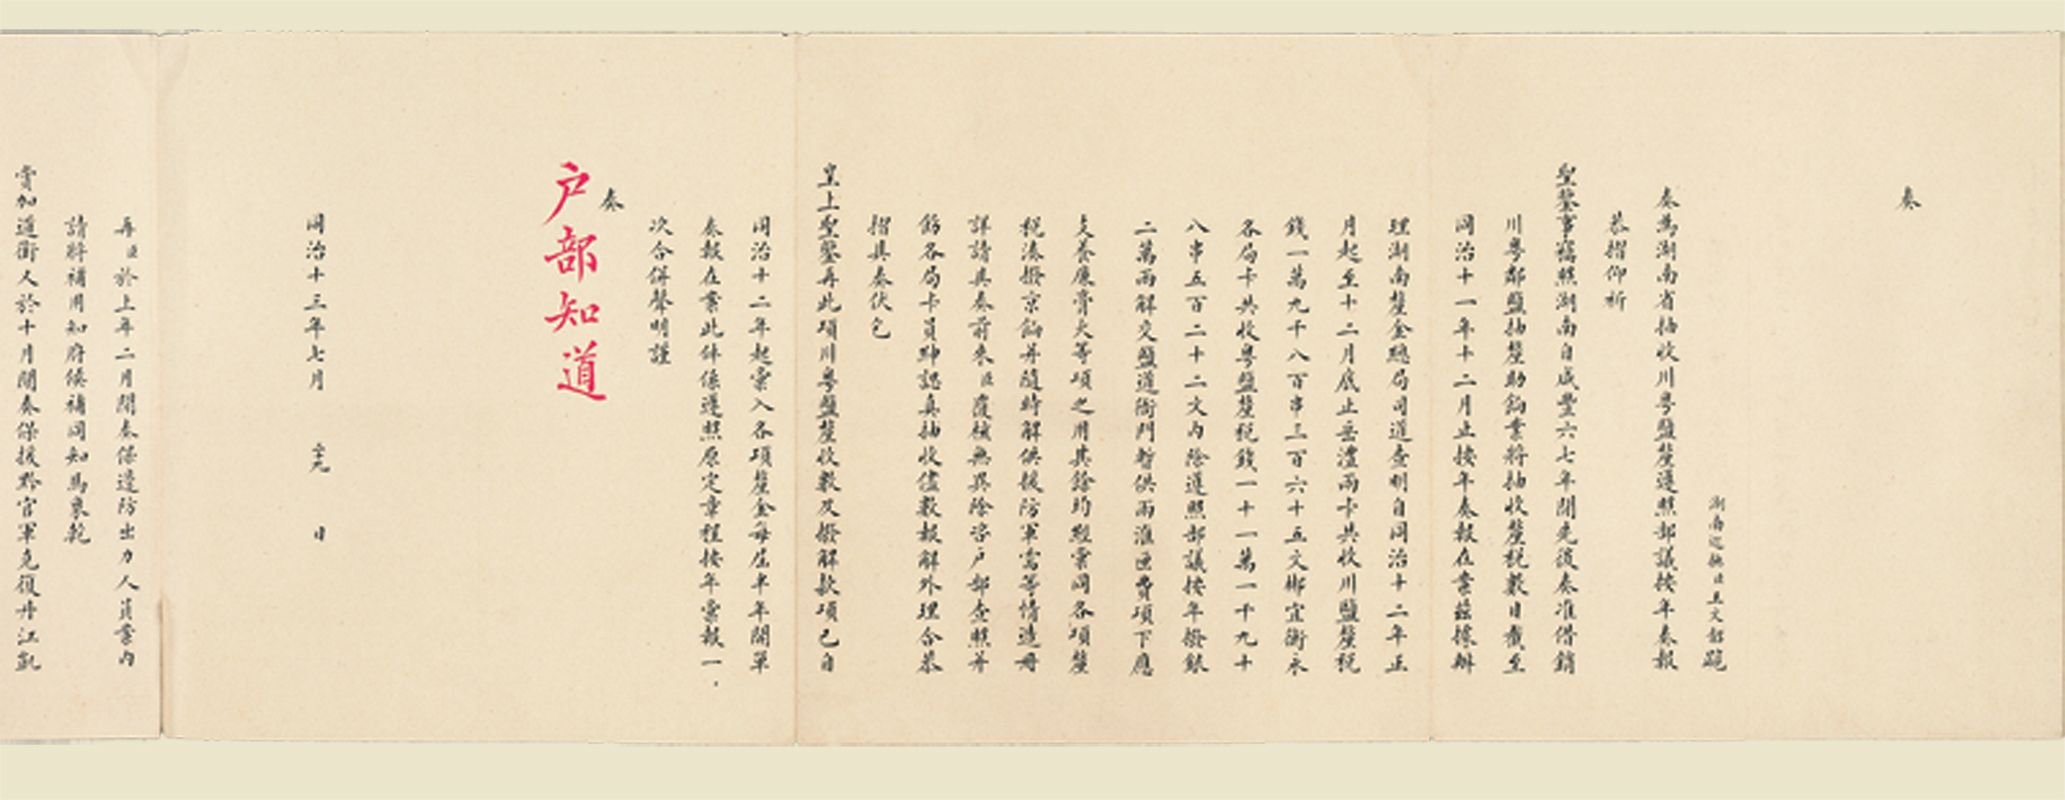 奏
湖南巡撫臣王文韶跪
奏為湖南省抽收川粵鹽釐遵照部議按年奏報
恭摺仰祈
聖鑒事竊照湖南自咸豐六七年間先後奏准借銷
川粵鄰鹽抽釐助餉業將抽收釐稅數目截至
同治十一年十二月止按年奏報在案茲據辦
理湖南釐金總局司道查明自同治十二年正
月起至十二月底止岳澧兩卡共收川鹽釐稅
錢一萬九千八百串三百六十五文郴宜衡永
各局卡共收粵鹽釐稅錢一十一萬一千九十
八串五百二十二文內除遵照部議按年撥銀
二萬兩解交鹽道衙門暫供兩淮匣費項下應
支養廉膏火等項之用其餘均經彙同各項釐
稅湊撥京餉并隨時解供援防軍需等情造冊
詳請具奏前來臣覆核無異除咨戶部查照并
飭各局卡員紳認真抽收儘數報解外理合恭
摺具奏伏乞
皇上聖鑒再此項川粵鹽釐收數及撥解款項已自
同治十二年起彙入各項釐金每屆半年開單
奏報在案此件係遵照原定章程按年彙報一
次合併聲明謹
奏
户部知道
同治十三年七月 二十九 日
再臣於上年二月間奏保邊防出力人員案內
請將補用知府候補同知馬象乾
賞加道銜又於十月間奏保援黔官軍克復丹江凱